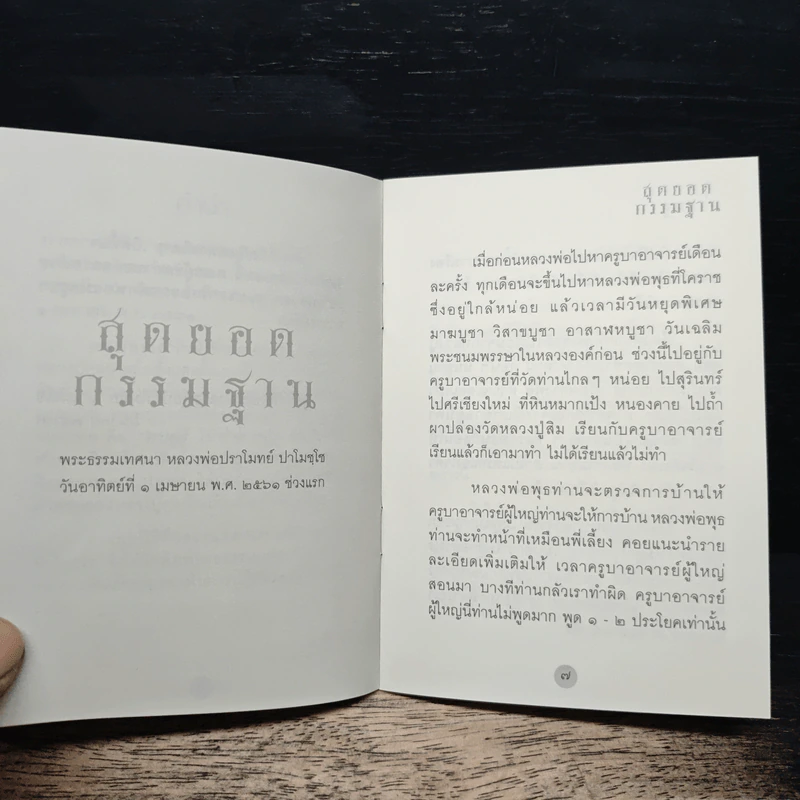 สุดยอด
กรรมฐาน
พระธรรมเทศนา หลวงพ่อปราโมทย์ ปาโมชฺโช
วันอาทิตย์ที่ ๑ เมษายน พ.ศ. ๒๕๖๑ ช่วงแรก
สุดยอด
กรรมฐาน
เมื่อก่อนหลวงพ่อไปหาครูบาอาจารย์เดือน
ละครั้ง ทุกเดือนจะขึ้นไปหาหลวงพ่อพุธที่โคราช
ซึ่งอยู่ใกล้หน่อย แล้วเวลามีวันหยุดพิเศษ
มาฆบูชา วิสาขบูชา อาสาฬหบูชา วันเฉลิม
พระชนมพรรษาในหลวงองค์ก่อน ช่วงนี้ไปอยู่กับ
ครูบาอาจารย์ที่วัดท่านไกลๆ หน่อย ไปสุรินทร์
ไปศรีเชียงใหม่ ที่หินหมากเป้ง หนองคาย ไปถ้ำ
ผาปล่องวัดหลวงปู่สิม เรียนกับครูบาอาจารย์
เรียนแล้วก็เอามาทำ ไม่ได้เรียนแล้วไม่ทำ
หลวงพ่อพุธท่านจะตรวจการบ้านให้
ครูบาอาจารย์ผู้ใหญ่ท่านจะให้การบ้าน หลวงพ่อพุธ
ท่านจะทำหน้าที่เหมือนพี่เลี้ยง คอยแนะนำราย
ละเอียดเพิ่มเติมให้ เวลาครูบาอาจารย์ผู้ใหญ่
สอนมา บางทีท่านกลัวเราทำผิด ครูบาอาจารย์
ผู้ใหญ่นี่ท่านไม่พูดมาก พูด ๑ - ๒ ประโยคเท่านั้น
๗